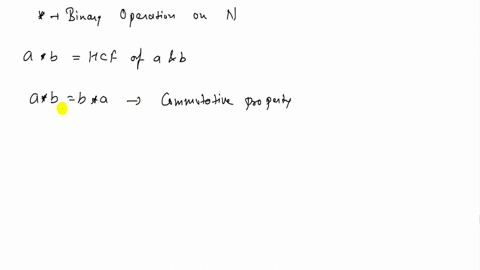 * → Binary Operation on N
a * b = HCF of a & b
a * b = b * a → Commutative property